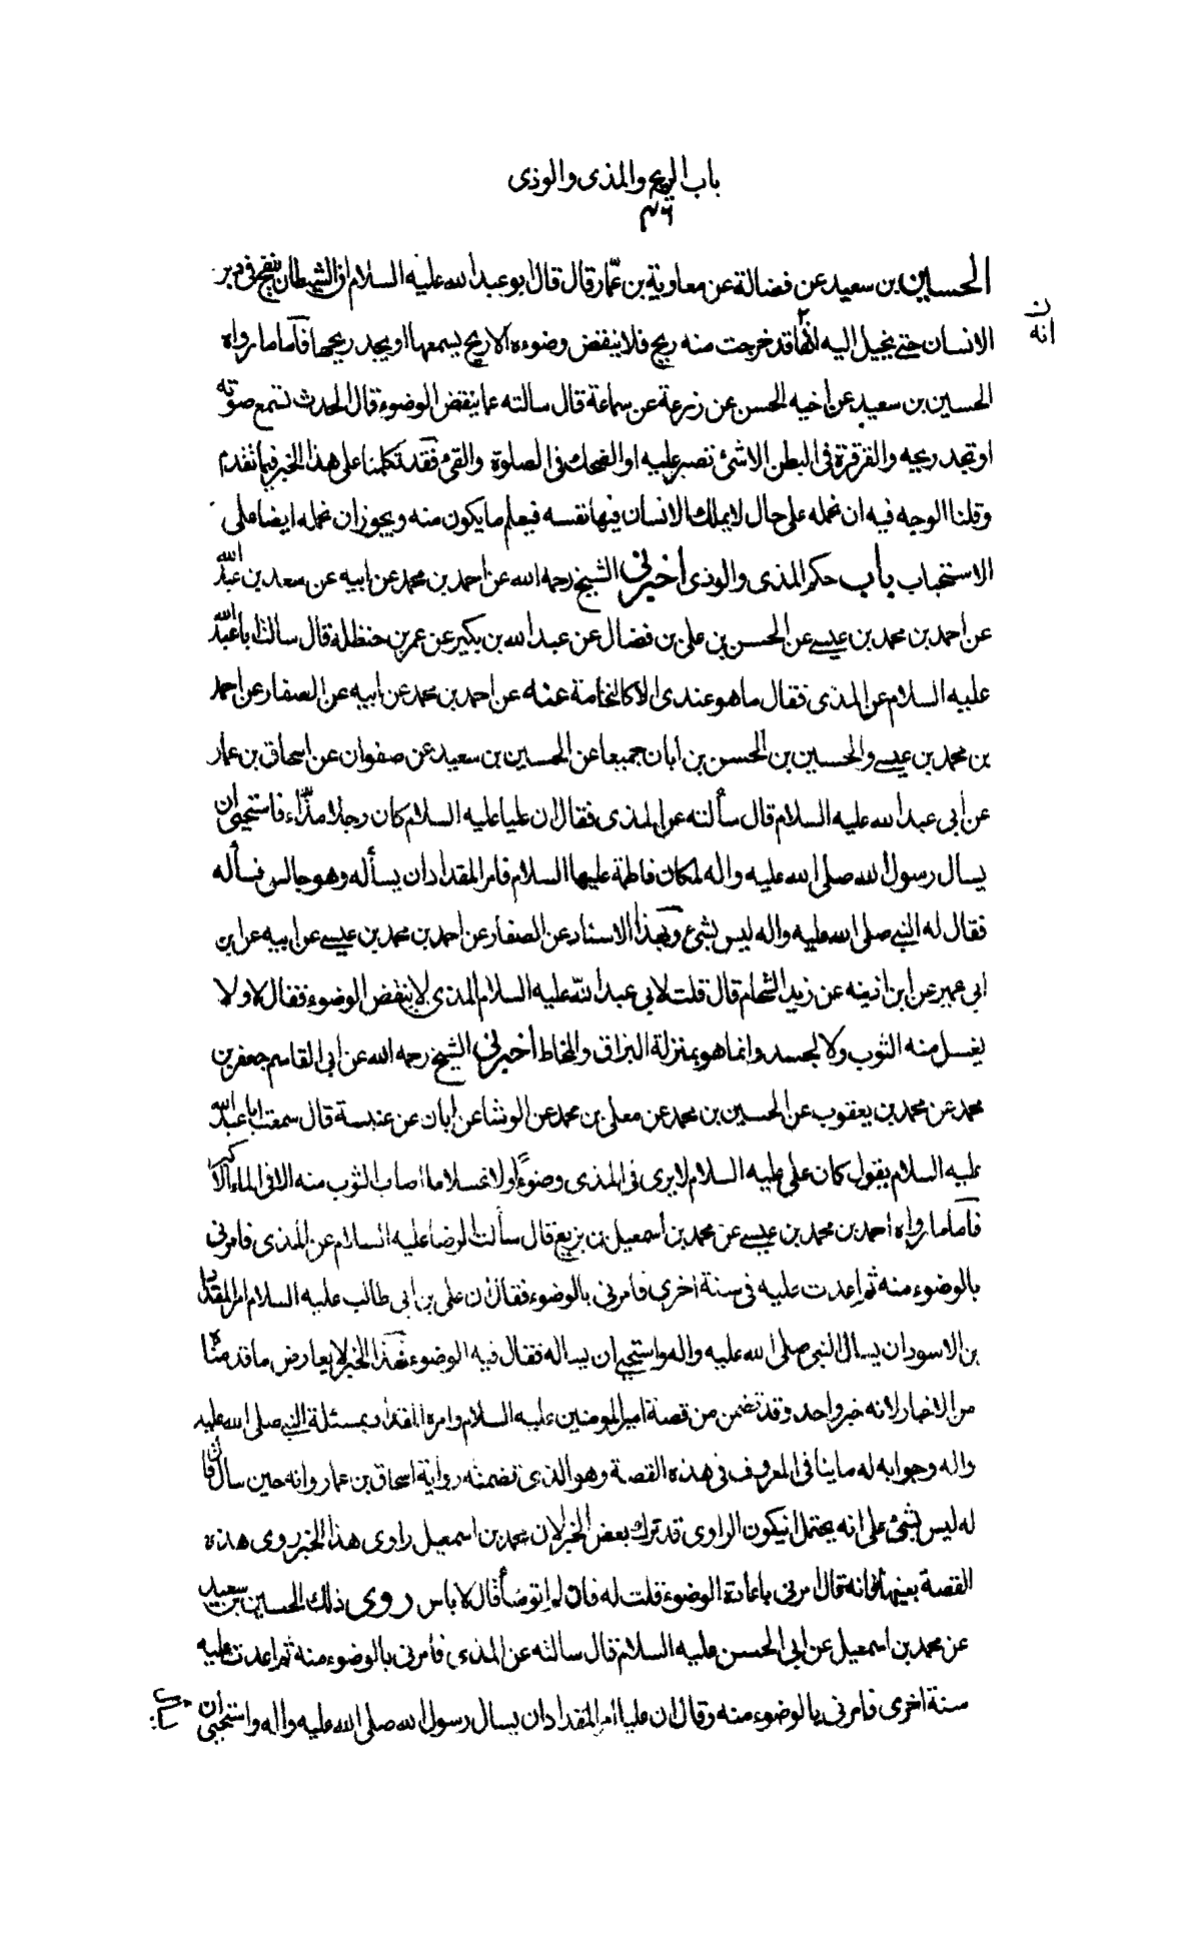 باب الريح والمذى والوذى
٤٦
الحسين بن سعيد عن فضالة عن معاوية بن عمّار قال قال ابو عبد الله عليه السلام ان الشيطان ينفخ فى دبر
الانسان حتى يخيل اليه انها قد خرجت منه ريح فلا ينقض وضوءه الا ريح يسمعها او يجد ريحها فأما ما رواه
ن
انه
الحسين بن سعيد عن اخيه الحسن عن زرعة عن سماعة قال سالته عما ينقض الوضوء قال الحدث تسمع صوته
او تجد ريحه والقرقرة فى البطن الا شئ تصبر عليه او الضحك فى الصلوة والقئ فقد تكلمنا على هذا الخبر فيما تقدم
وقلنا الوجه فيه ان نحمله على حال لا يملك الانسان فيها نفسه فيعلم ما يكون منه ويجوز ان نحمله ايضا على
الاستحباب باب حكم المذى والوذى أخبرنى الشيخ رحمه الله عن احمد بن محمد عن ابيه عن سعد بن عبد الله
عن احمد بن محمد بن عيسى عن الحسن بن على بن فضال عن عبد الله بن بكير عن عمر بن حنظلة قال سالت ابا عبد الله
عليه السلام عن المذى فقال ما هو عندى الا كالنخامة عنه عن احمد بن محمد عن ابيه عن الصفار عن احمد
بن محمد بن عيسى والحسين بن الحسن بن ابان جميعا عن الحسين بن سعيد عن صفوان عن اسحاق بن عمار
عن أبى عبد الله عليه السلام قال سألته عن المذى فقال ان عليا عليه السلام كان رجلا مذّاء فاستحيى ان
يسال رسول الله صلى الله عليه واله لمكان فاطمة عليها السلام فامر المقداد ان يسأله وهو جالس فسأله
فقال له النبى صلى الله عليه واله ليس بشئ وبهذا الاسناد عن الصفار عن احمد بن محمد بن عيسى عن ابيه عن ابن
ابى عمير عن ابن اذينه عن زيد الشحام قال قلت لابى عبد الله عليه السلام المذى لا ينقض الوضوء فقال لا ولا
يغسل منه الثوب ولا الجسد وانما هو بمنزلة البزاق والمخاط أخبرنى الشيخ رحمه الله عن ابى القاسم جعفر بن
محمد عن محمد بن يعقوب عن الحسين بن محمد عن معلى بن محمد عن الوشا عن ابان عن عنبسة قال سمعت ابا عبد الله
عليه السلام يقول كان على عليه السلام لا يرى فى المذى وضوءًا ولا غسلا ما أصاب الثوب منه الا فى الماء الاكبر
فأما ما رواه احمد بن محمد بن عيسى عن محمد بن أسمعيل بن بزيع قال سألت الرضا عليه السلام عن المذى فامرنى
بالوضوء منه ثم اعدت عليه فى سنة أخرى فامرنى بالوضوء فقال ان على بن ابى طالب عليه السلام امر المقداد
بن الاسود ان يسال النبى صلى الله عليه واله واستحيى ان يساله فقال فيه الوضوء فهذا الخبر لا يعارض ما قدمناه
من الاخبار لانه خبر واحد وقد تضمن من قصة امير المومنين عليه السلام وامره المقداد بمسئلة النبى صلى الله عليه
واله وجوابه له ما ينافى المعروف فى هذه القصة وهو الذى تضمنه رواية اسحاق بن عمار وانه حين ساله قال
له ليس بشئ على انه يحتمل ان يكون الراوى قد ترك بعض الخبر لان محمد بن اسمعيل راوى هذا الخبر روى هذه
القصة بعينها فانه قال امرنى باعادة الوضوء قلت له فان لم اتوضأ قال لا باس روى ذلك الحسين بن سعيد
عن محمد بن اسمعيل عن ابى الحسن عليه السلام قال سالته عن المذى فأمرنى بالوضوء منه ثم اعدت عليه
سنة اخرى فامرنى بالوضوء منه وقال ان عليا امر المقداد ان يسال رسول الله صلى الله عليه واله واستحيى ان